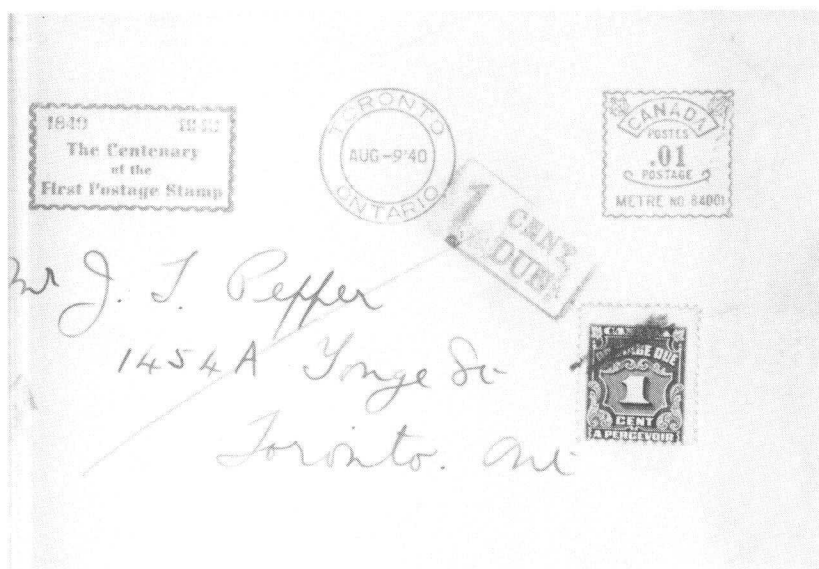 1840 1940
The Centenary
of the
First Postage Stamp
TORONTO
AUG-9'40
ONTARIO
CANADA
POSTES
.01
POSTAGE
METRE NO. 84001
1 CENT
DUE
Mr J. T. Pepper
1454A Yonge St
Toronto. Ont
CANADA
POSTAGE DUE
1
CENT
A PERCEVOIR